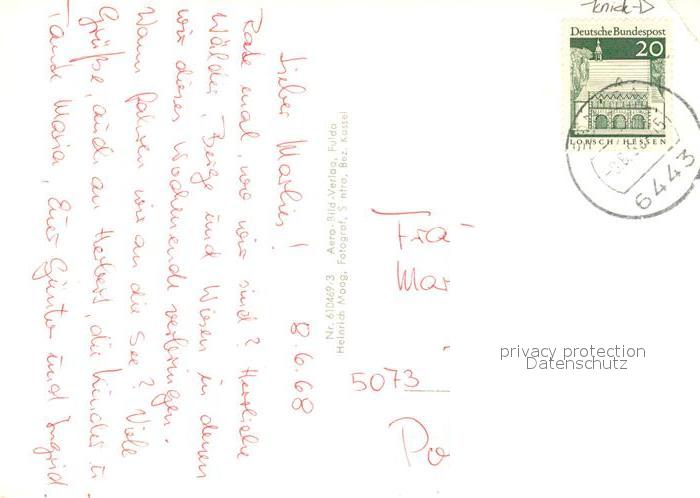 Knick
Deutsche Bundespost
20
LORSCH / HESSEN
6443
8.6.68
Lieber Marlies!
Rate mal, wo wir sind? Herrliche
Wälder, Berge und Wiesen in denen
wir dieses Wochenende verbringen.
Wann fahren wir an die See? Viele
Grüße, auch an Herbert, die Kinder u.
Tante Maria, Eure Günter und Ingrid.
Nr. 610469/3 Aero-Bild-Verlag, Fulda
Heinrich Maag, Fotograf, S ntra, Bez. Kassel
Fra
Mar
5073
Po
privacy protection
Datenschutz